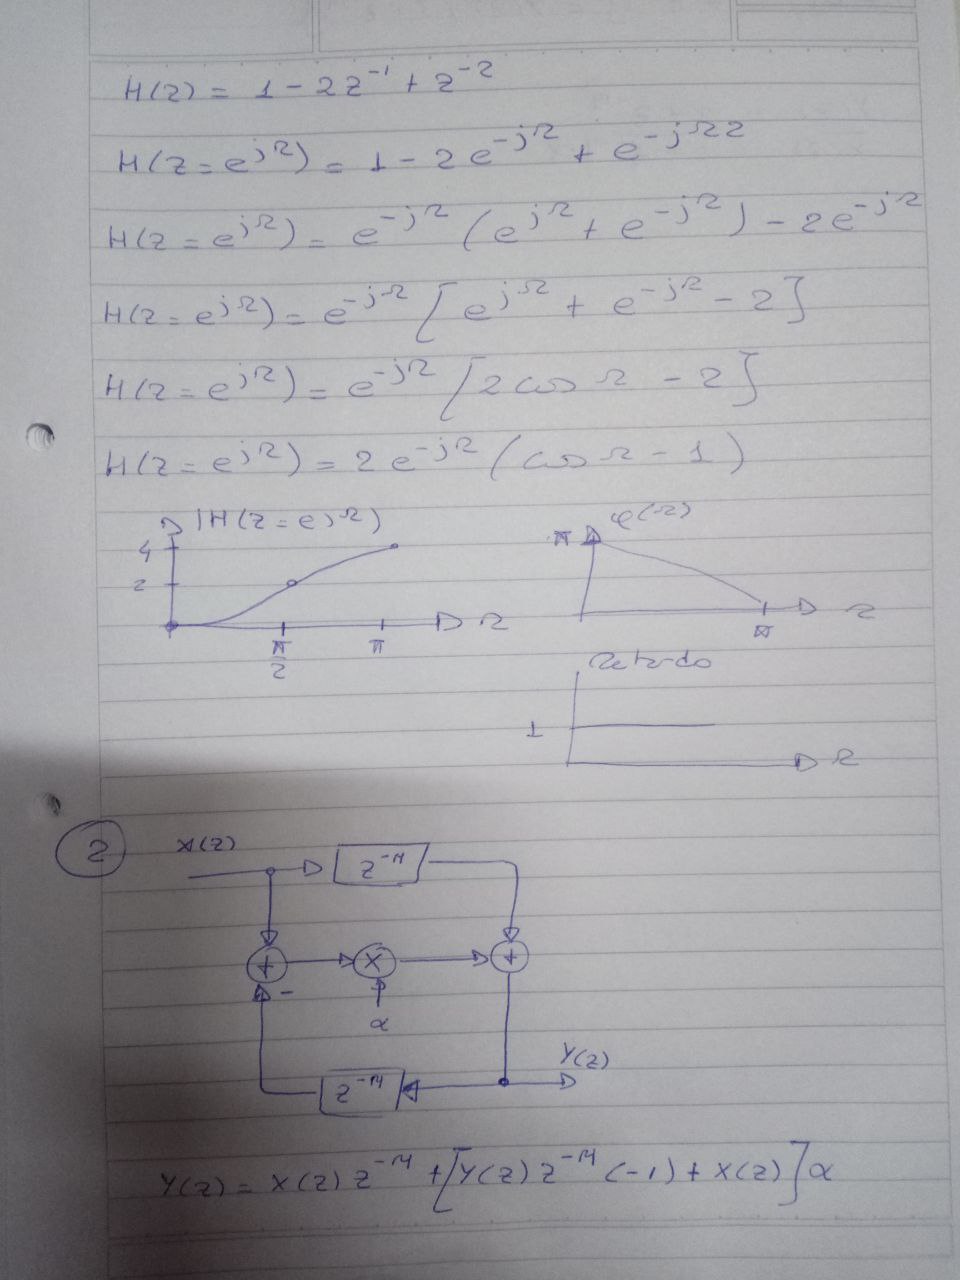 H(z) = 1 - 2z⁻¹ + z⁻²
H(z = e^{jΩ}) = 1 - 2e^{-jΩ} + e^{-jΩ2}
H(z = e^{jΩ}) = e^{-jΩ} (e^{jΩ} + e^{-jΩ}) - 2e^{-jΩ}
H(z = e^{jΩ}) = e^{-jΩ} [e^{jΩ} + e^{-jΩ} - 2]
H(z = e^{jΩ}) = e^{-jΩ} [2 cos Ω - 2]
H(z = e^{jΩ}) = 2e^{-jΩ} (cos Ω - 1)
|H(z = e^{jΩ})
4
2
π/2
π
Ω
φ(Ω)
π
π
Ω
Retardo
1
Ω
2
X(z)
z^{-M}
+
x
+
-
α
z^{-M}
Y(z)
Y(z) = X(z) z^{-M} + [Y(z) z^{-M} (-1) + X(z)] α